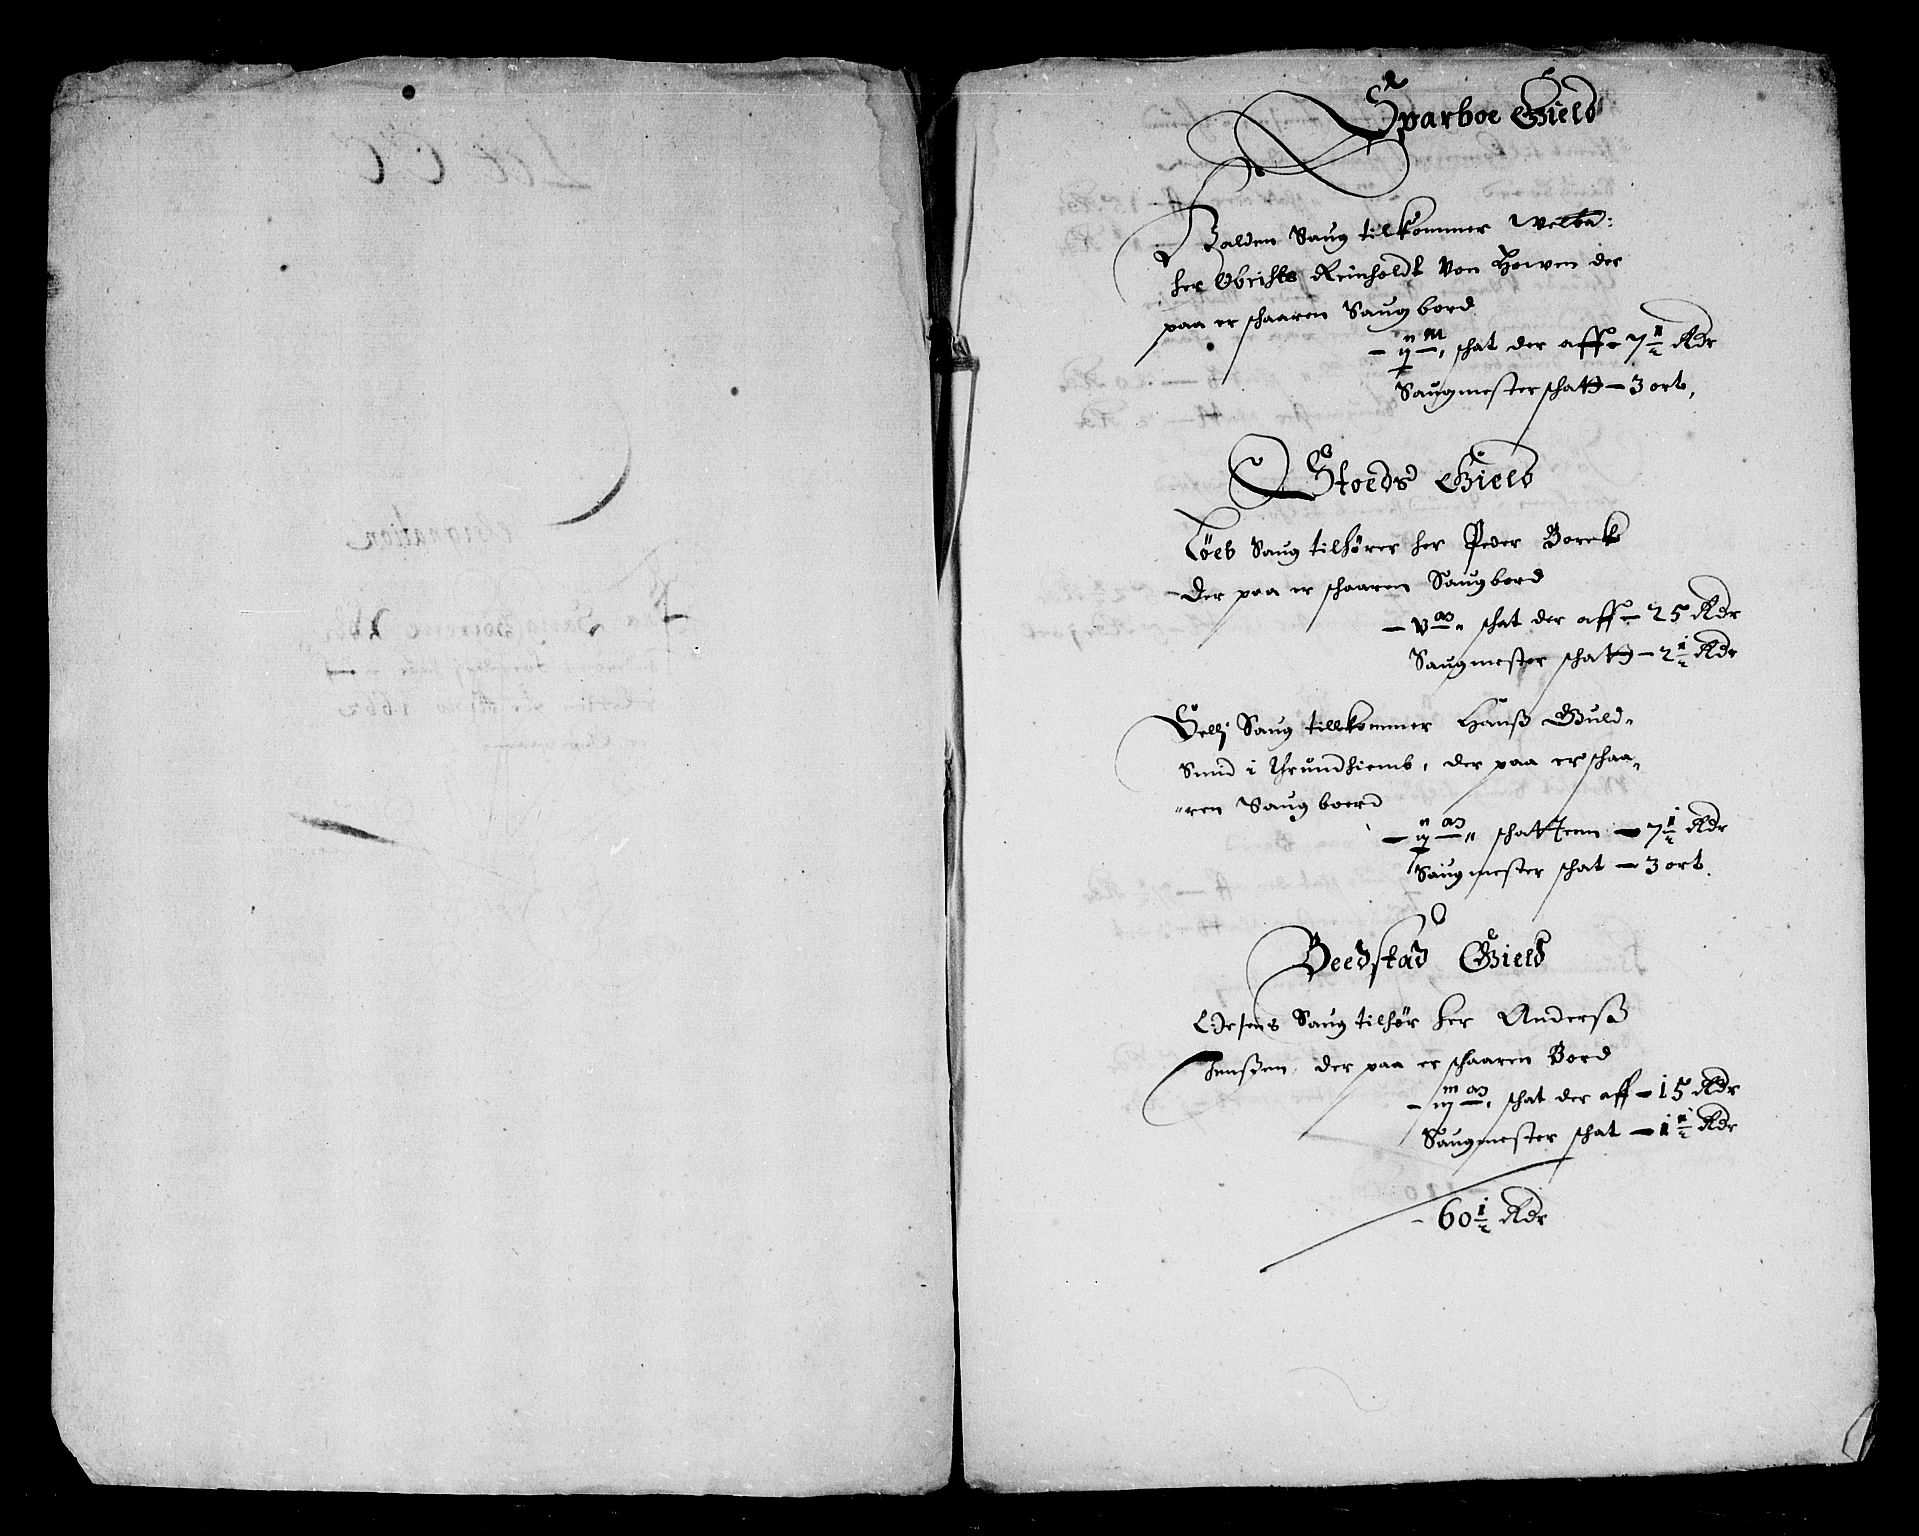 Sparboe Gield
Balden Saug tilkommer Welba:
her Obriste Reinholdt Von Howen der
paa er schaaren Saugbord
– ij m, schat der aff – 7 1/2 Rdr
Saugmester schatt – 3 ort,
Stoeds Gield
Löeb Saug tilhörer her Peder Borck
Der paa er schaaren Saugbord
– v m schat der aff – 25 Rdr
Saugmester schatt – 2 1/2 Rdr
Saug tillkommer Hanß Guld-
Smid i Thrundhiemb, der paa er schaa-
-ren Saugboerd
– ij m schattenn – 7 1/2 Rdr
Saugmester schat – 3 ort.
Beedstad Gield
Saug tilhör her Anderß
Jenßen, der paa er schaaren Bord
– iij m, schat der aff – 15 Rdr
Saugmester schat – 1 1/2 Rdr
– 60 1/2 Rdr